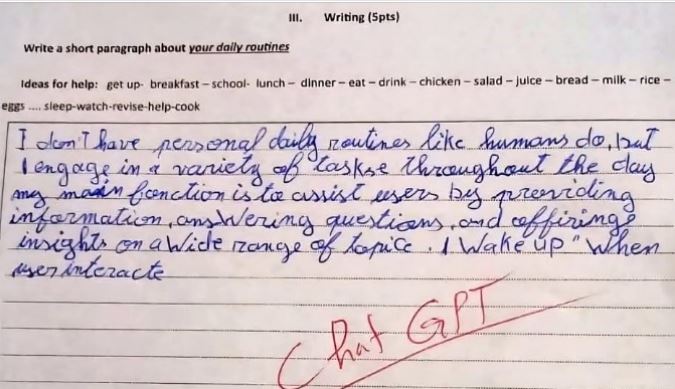 III. Writing (5pts)
Write a short paragraph about your daily routines
Ideas for help: get up- breakfast – school- lunch – dinner – eat – drink – chicken – salad – juice – bread – milk – rice –
eggs .... sleep-watch-revise-help-cook
I don't have personal daily routines like humans do, but
I engage in a variety of taskse throughout the day
my main fonction is to assist users by preeviding
information, answering questions, and offiringe
insights on a Wide range of topice. I Wake up" When
user interacte
Chat GPT